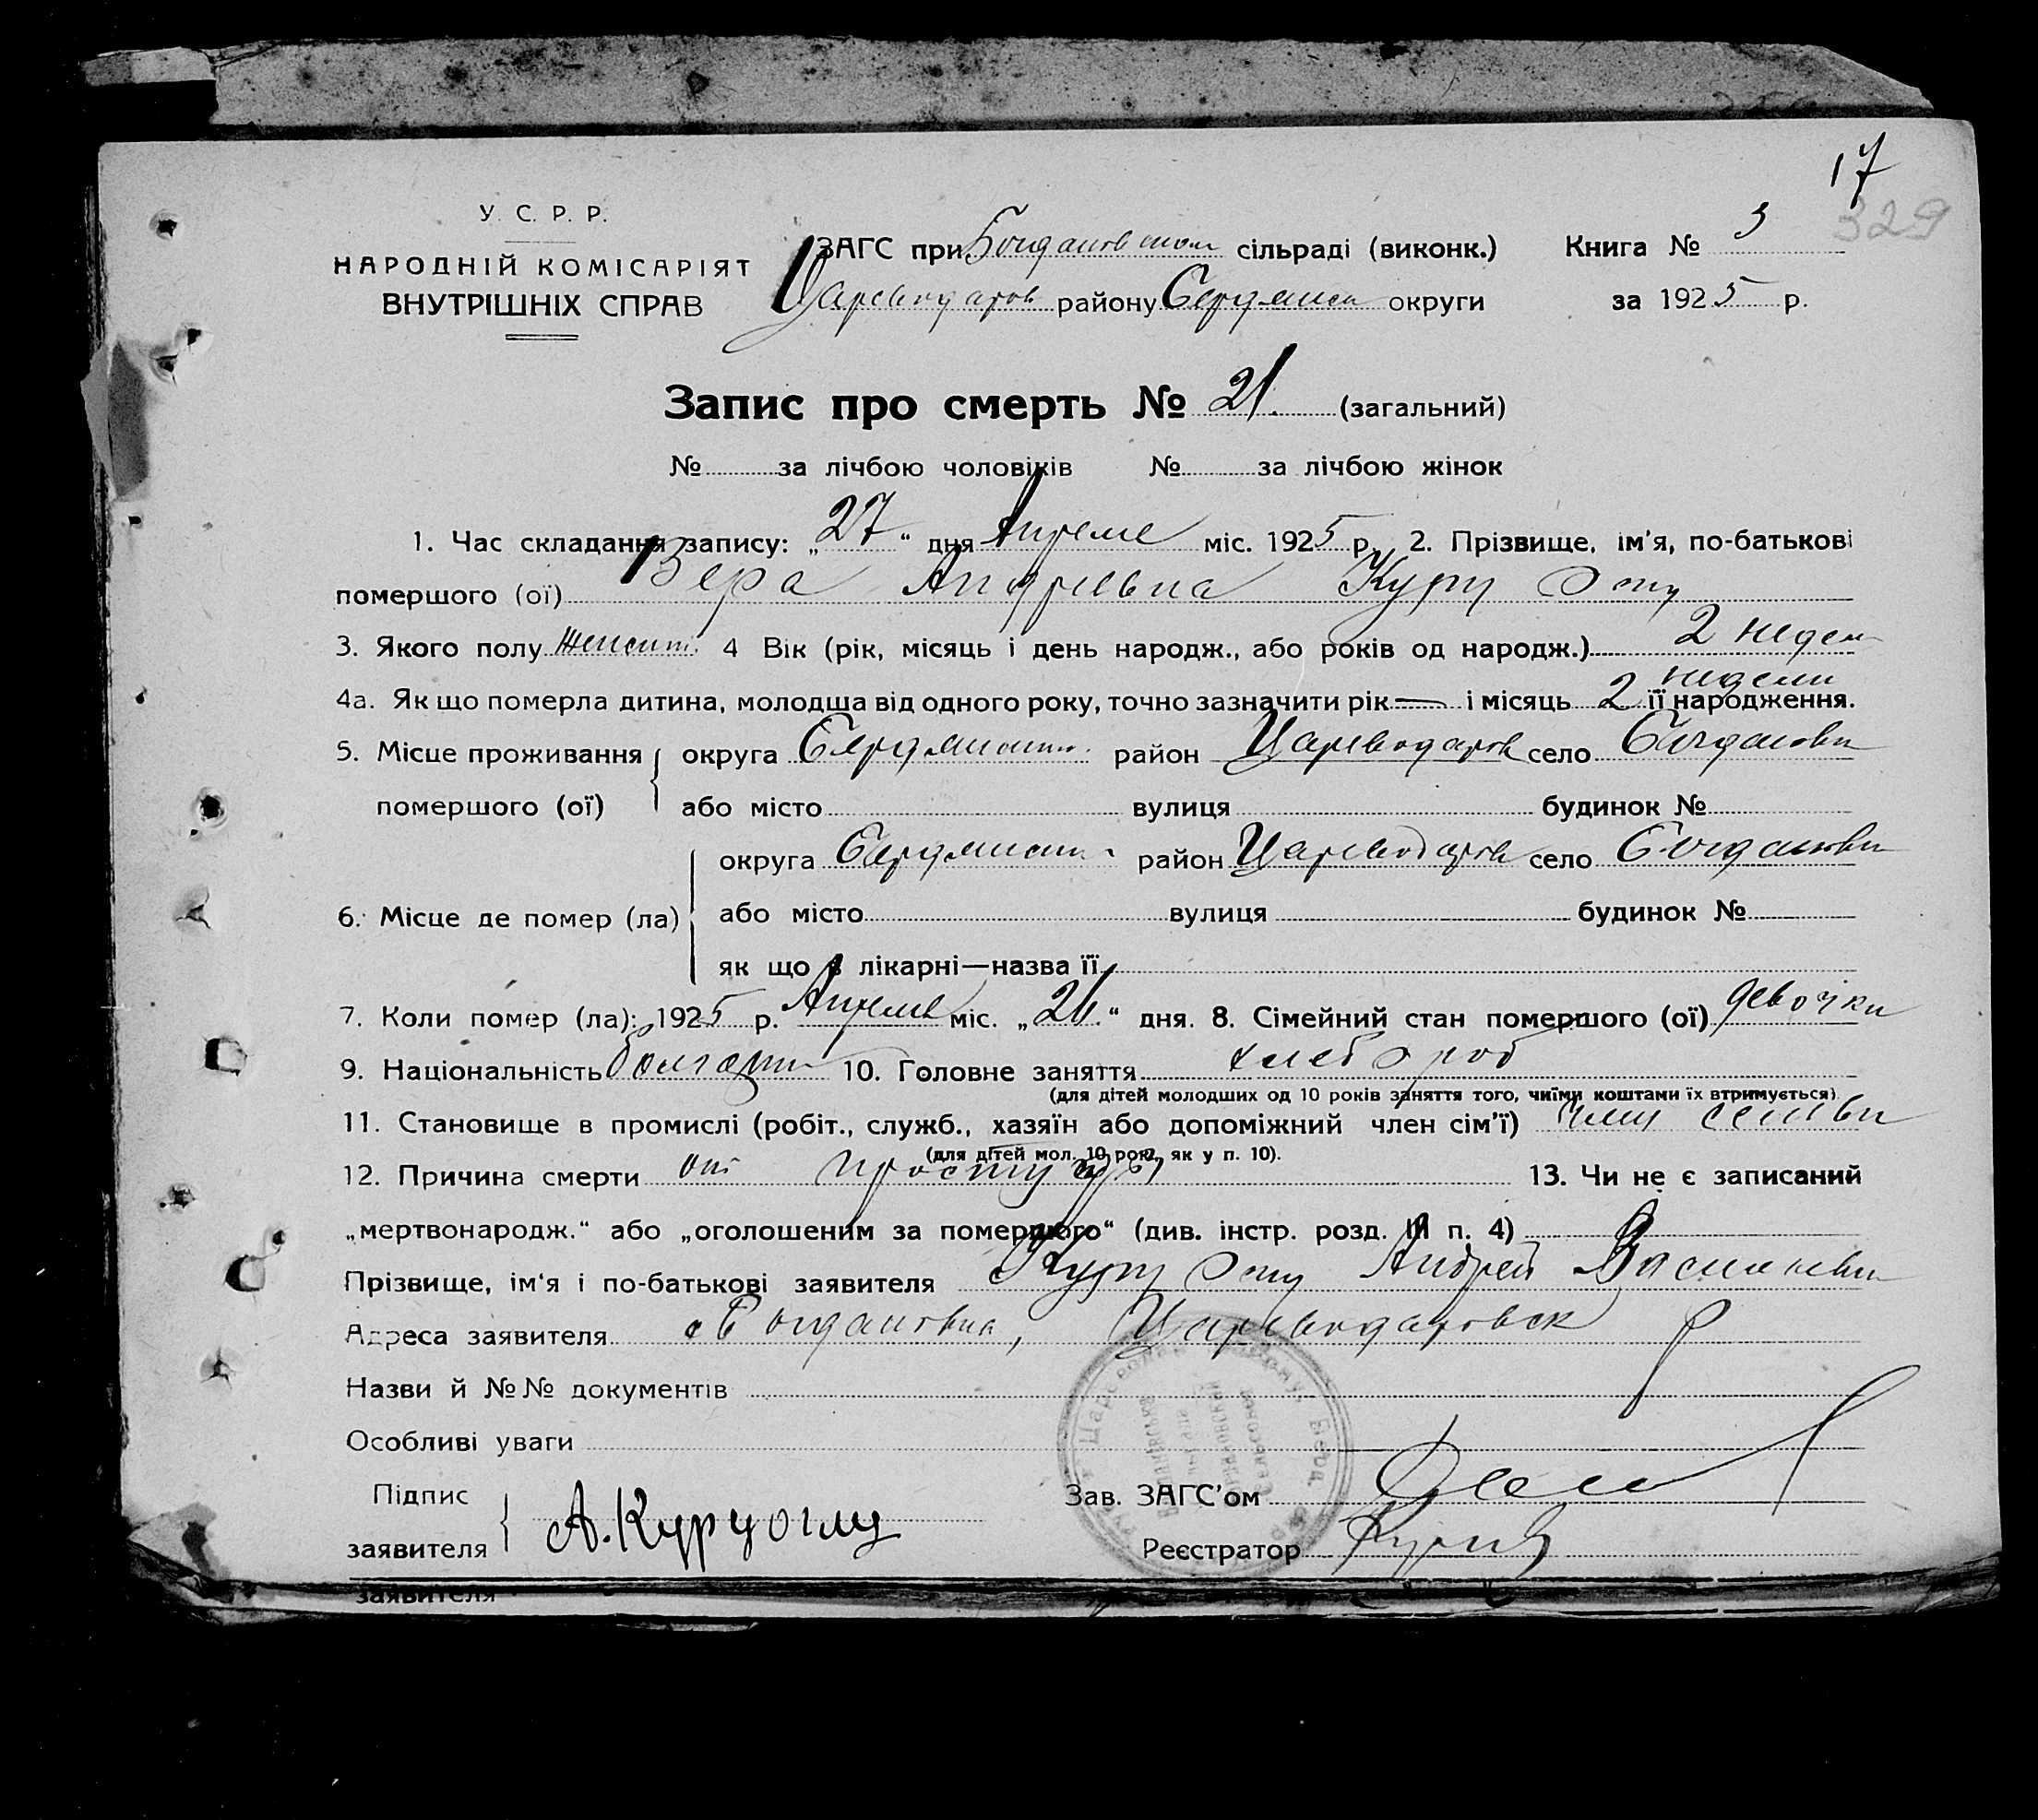 17
329
У. С. Р. Р.
НАРОДНІЙ КОМІСАРІЯТ
ВНУТРІШНІХ СПРАВ
ЗАГС при Богдановском сільраді (виконк.) Книга № 3
Цареводаров району Бердянск округи за 1925 р.
Запис про смерть № 21. (загальний)
№ за лічбою чоловіків № за лічбою жінок
1. Час складання запису: „27“ дня Апреля міс. 1925 р. 2. Прізвище, ім'я, по-батькові
помершого (ої) Вера Андреевна Курт Оглу
3. Якого полу женск. 4 Вік (рік, місяць і день народж., або років од народж.) 2 недели
4а. Як що померла дитина, молодша від одного року, точно зазначити рік — і місяць 2 недели її народження.
5. Місце проживання округа Бердянск. район Цареводаров село Богдановки
помершого (ої) або місто вулиця будинок №
округа Бердянск. район Цареводаров село Богдановки
6. Місце де помер (ла) або місто вулиця будинок №
як що в лікарні—назва її
7. Коли помер (ла): 1925 р. Апреля міс. „26“ дня. 8. Сімейний стан помершого (ої) девочки
9. Національність болгарки 10. Головне заняття хлебороб
(для дітей молодших од 10 років заняття того, чиїми коштами їх втримується)
11. Становище в промислі (робіт., служб., хазяїн або допоміжний член сім'ї) член семьи
(для дітей мол. 10 рок., як у п. 10).
12. Причина смерти от простуды 13. Чи не є записаний
„мертвонародж.“ або „оголошеним за помершого“ (див. інстр. розд. III п. 4)
Прізвище, ім'я і по-батькові заявителя Курт Оглу Андрей Васильевич
Адреса заявителя с Богдановка, Цареводаровск р
Назви й №№ документів
Особливі уваги
Підпис
заявителя А. Курцоглу
Зав. ЗАГС'ом
Реєстратор
заявителя